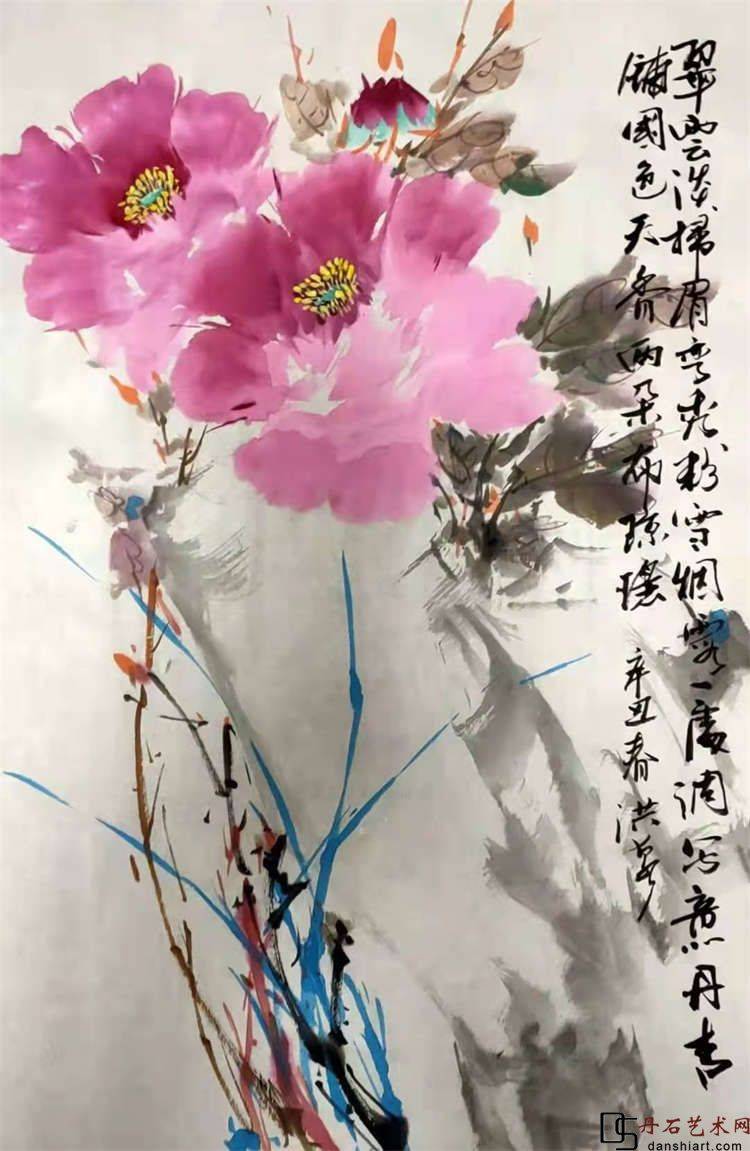 翠雲淡掃眉弯 粉雪烟霞一處调写意丹青
鋪國色天香兩朵布琼
辛丑春 洪
丹石艺术网
danshiart.com